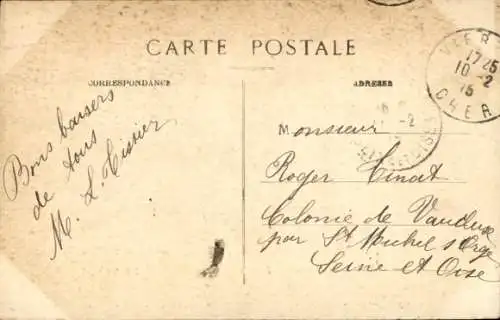 CARTE POSTALE
CORRESPONDANCE
ADRESSE
Bons baisers
de tous
M. L. Tisier
Monsieur
Roger Tinat
Colonie de Vaucluse
par St Michel s Orge
Seine et Oise
VIER
17 25
10 -2
15
CHER
-2